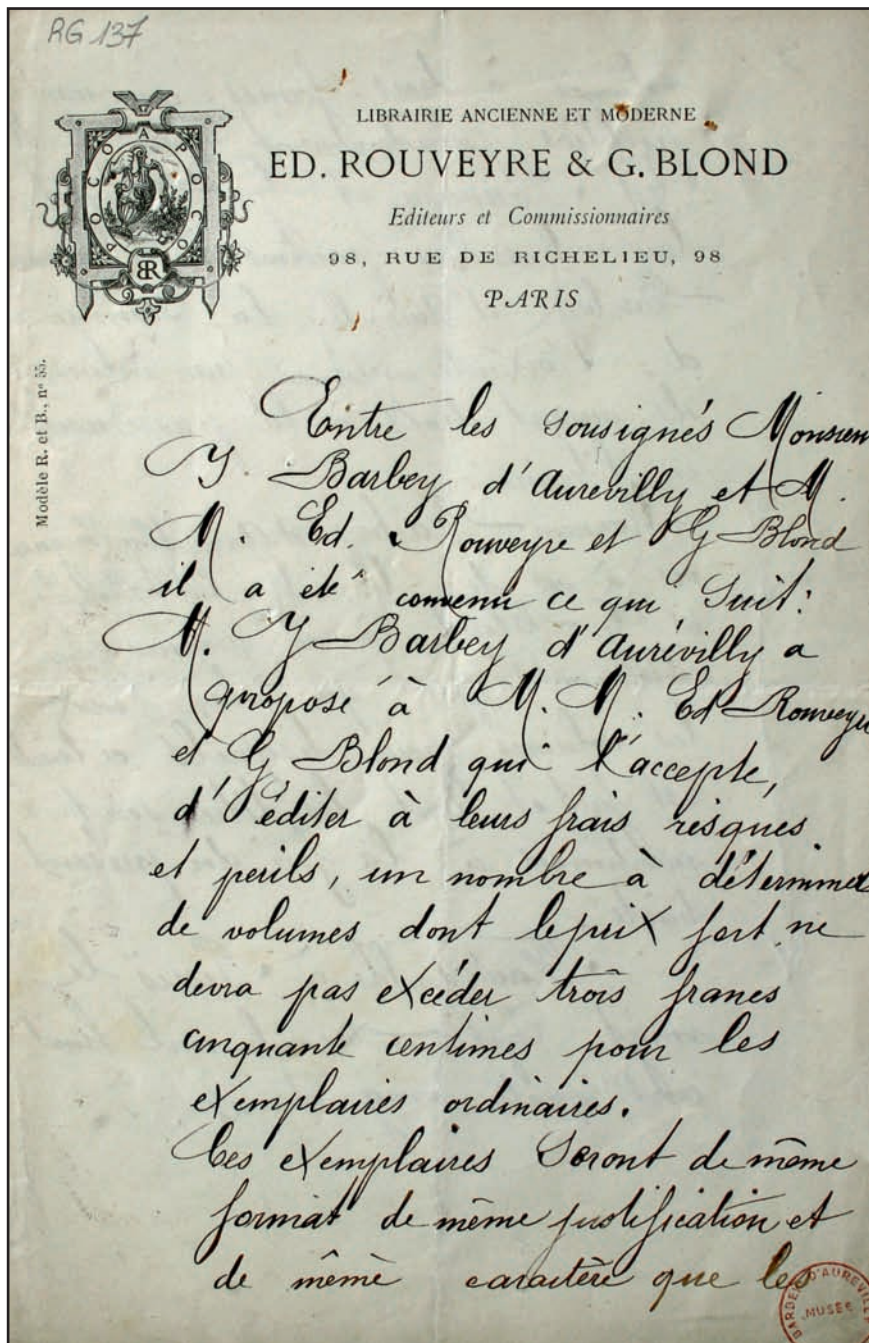 RG 137
LIBRAIRIE ANCIENNE ET MODERNE
ED. ROUVEYRE & G. BLOND
Editeurs et Commissionnaires
98, RUE DE RICHELIEU, 98
PARIS
POCO A POCO
BR
Modèle R. et B., nº 55.
Entre les Sousignés Monsieu
J. Barbey d'Aurevilly et M.
M. Ed. Rouveyre et G Blond
il a été convenu ce qui Suit:
M. J Barbey d'Aurévilly a
proposé à M. M. Ed Rouveyre
et G Blond qui l'accepte,
d'éditer à leurs frais risques
et perils, un nombre à déterminer
de volumes dont le prix fort ne
devra pas excéder trois francs
cinquante centimes pour les
exemplaires ordinaires.
Ces exemplaires Seront de même
format de même justification et
de même caractère que les
BARBEY D'AUREVILLY
MUSEE